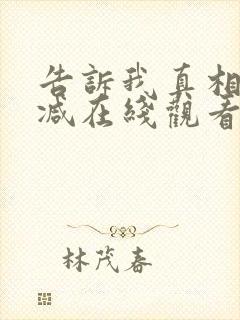 告訴我真相
减在綫觀看
林茂春